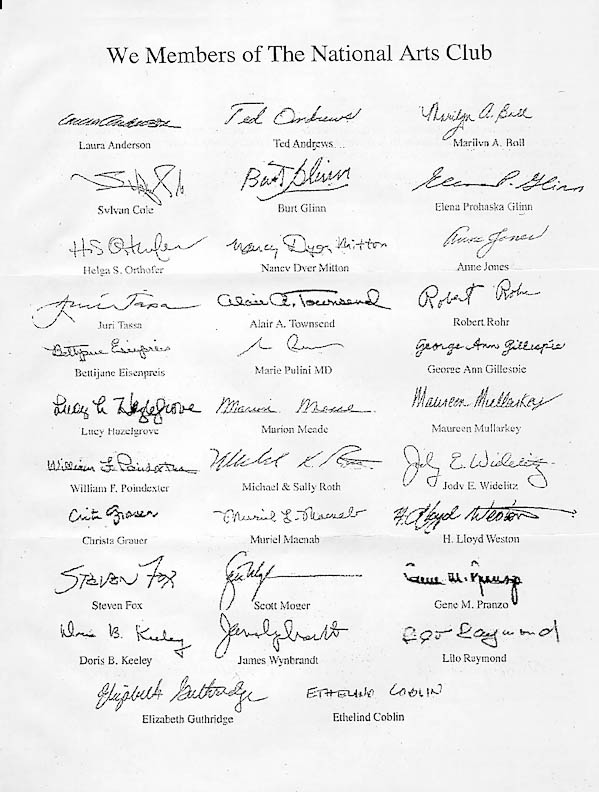 We Members of The National Arts Club
Laura Anderson Ted Andrews Marilyn A. Boll
Laura Anderson Ted Andrews Marilyn A. Boll
Burt Glinn Elena P. Glinn
Sylvan Cole Burt Glinn Elena Prohaska Glinn
H S Orthofer Nancy Dyer Mitton Anne Jones
Helga S. Orthofer Nancy Dyer Mitton Anne Jones
Juri Tassa Alair A. Townsend Robert Rohr
Juri Tassa Alair A. Townsend Robert Rohr
Bettijane Eisenpreis George Ann Gillespie
Bettijane Eisenpreis Marie Pulini MD George Ann Gillespie
Lucy Hazelgrove Marion Meade Maureen Mullarkey
Lucy Hazelgrove Marion Meade Maureen Mullarkey
William F. Poindexter Michael K Jody E. Widelitz
William F. Poindexter Michael & Sally Roth Jody E. Widelitz
Christa Grauer Muriel L. Macnab H. Lloyd Weston
Christa Grauer Muriel Macnab H. Lloyd Weston
STEVEN FOX Gene M. Pranzo
Steven Fox Scott Moger Gene M. Pranzo
Doris B. Keeley Lilo Raymond
Doris B. Keeley James Wynbrandt Lilo Raymond
Elizabeth Guthridge ETHELIND COBLIN
Elizabeth Guthridge Ethelind Coblin